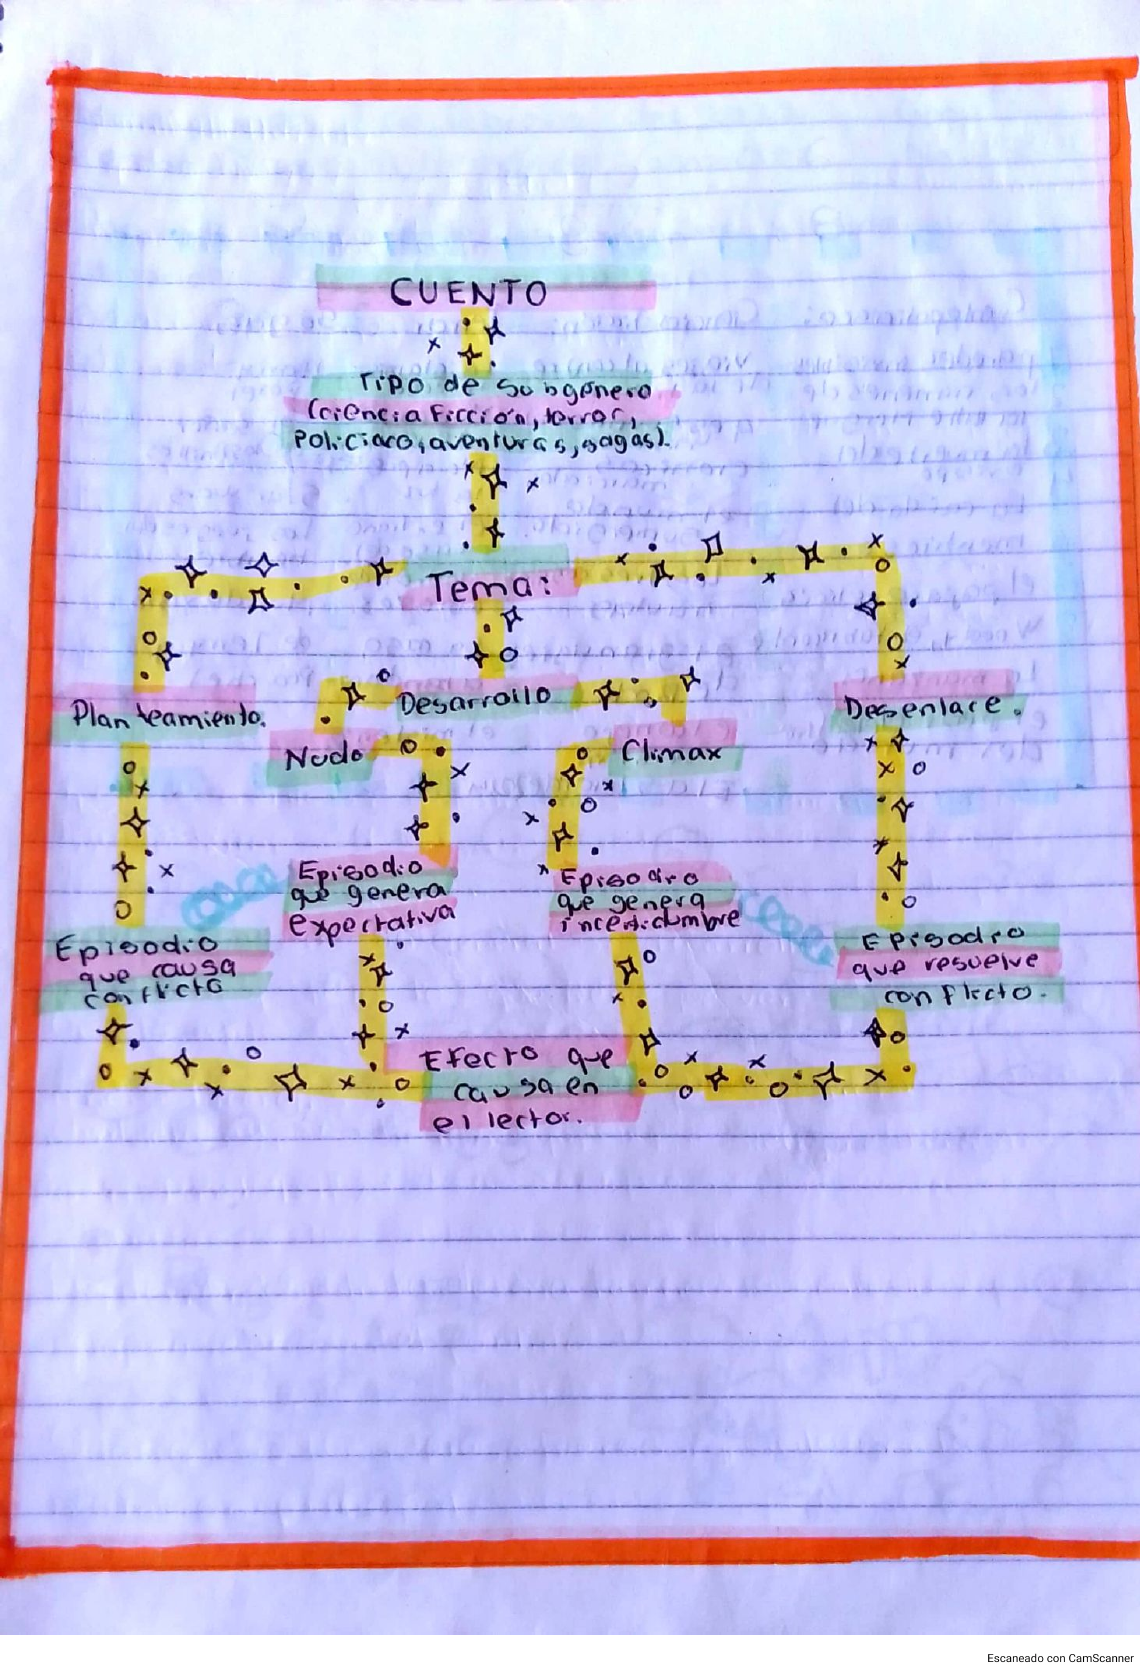 CUENTO
Tipo de subgénero
(ciencia ficción, terror,
policiaco, aventuras, sagas).
Tema:
Planteamiento.
Desarrollo
Desenlace.
Nudo
Climax
Episodio
que causa
conflicto
Episodio
que genera
expectativa
Episodio
que genera
incertidumbre
Episodio
que resuelve
conflicto.
Efecto que
causa en
el lector.
Escaneado con CamScanner